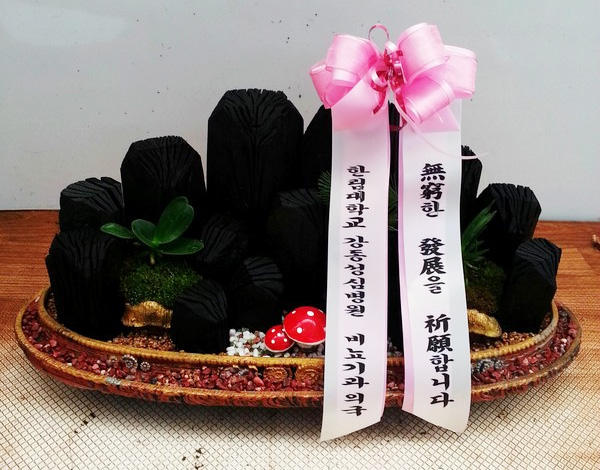 無窮한 發展을 祈願합니다
한림대학교 강동성심병원 비뇨기과 의국